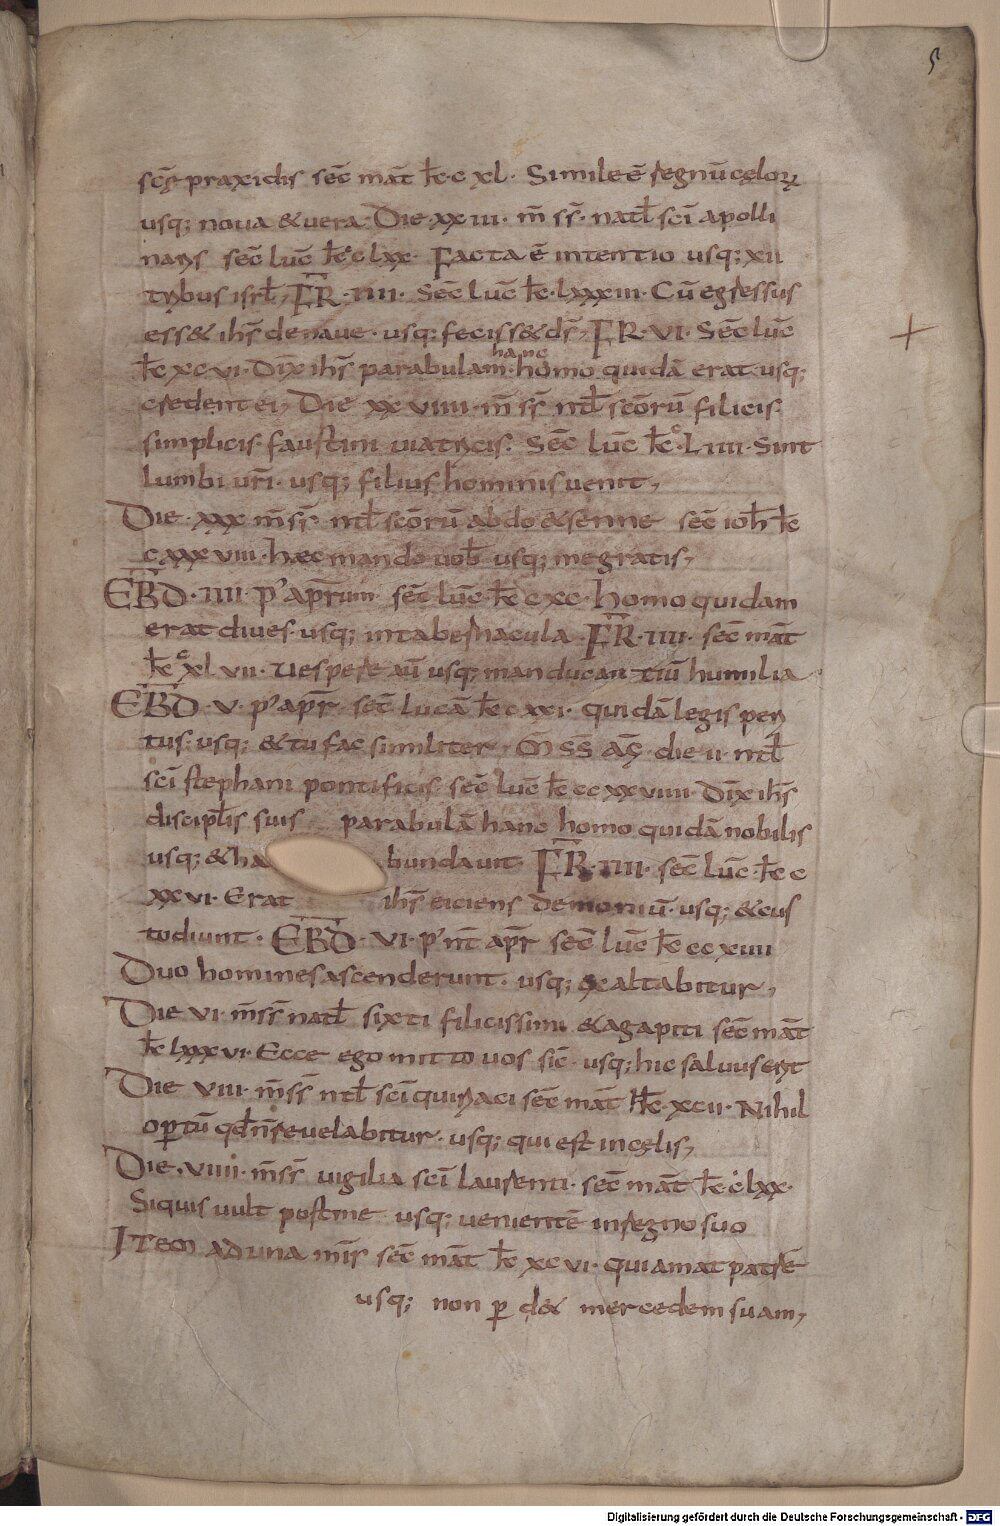 5
scę praxidis sec̄ mat̄ k̄ c xl · Simile ē regnū cęlorꝝ
usq; noua & uera · Die · xx iii · m̄ sr̄ · natl̄ sc̄i apolli
naris sec̄ luc̄ k̄ c lxx · Facta ē intentio usq; xii
tribus isrl̄, FR̄ · IIII · Sec̄ Luc̄ k̄ · lxxxiii · Cū egressus
ess& ih̄s de naue · usq; feciss& ds̄, FR · VI · Sec̄ luc̄
k̄ xc vi · Dix̄ ih̄s parabulam · hanc homo quidā erat usq;
credent ei, Die xx viiii · m̄ sr̄ ntl̄ sc̄orū filicis
simplicis · faustini uiatricis · Sec̄ luc̄ k̄ · Liiii · Sint
lumbi ur̄i · usq; filius hominis uenit,
Die · xxx m̄ sr̄ ntl̄ sc̄orū abdo & senne sec̄ ioh̄ k̄
c xxx viii · hæc mando uob̄ usq; me gratis,
EBD̄ · IIII · p' ap̄rum sec̄ luc̄ k̄ c xc · homo quidam
erat diues · usq; in tabernacula · FR̄ · IIII · sec̄ mat̄
k̄ c xl vii · Uespere au̅ usq; manducantiū humilia
EBD̄ · V · p' ap̄r sec̄ lucā k̄ c xxi · quidā legis peri
tus · usq; & tu fac similiter, M̄ S̄S̄ AḠ die ii · ntl̄
sc̄i stephani pontificis sec̄ luc̄ k̄ cc xxviiii · Dix̄ ih̄s
discipl̄is suis parabulā hanc homo quidā nobilis
usq; & ha bundauit FR̄ · IIII · sec̄ luc̄ · k̄ c
xx vi · Erat ih̄s eiciens demoniū · usq; & cus
todiunt · EBD̄ · VI · p' nt̄ ap̄r sec̄ luc̄ k̄ cc xiiii
Duo homines ascenderunt · usq; exaltabitur,
Die VI · m̄ sr̄ natl̄ sixti filicissimi & agapiti sec̄ mat̄
k̄ lxxx vi · Ecce ego mitto uos sic̄ · usq; hic saluus erit
Die VIII · m̄ sr̄ ntl̄ sc̄i quiriaci sec̄ mat̄ k̄ · xcii · Nihil
opertū qd̄ n̄ reuelabitur · usq; qui est in cęlis,
Die · VIIII · m̄ sr̄ uigilia sc̄i laurenti · sec̄ mat̄ k̄ · c lxx ·
Siquis uult post me usq; uenientē in regno suo
ITEM ad una mis̄ sec̄ mat̄ k̄ xc vi · qui amat patrē
usq; non ꝑd& mercedem suam,
Digitalisierung gefördert durch die Deutsche Forschungsgemeinschaft - DFG